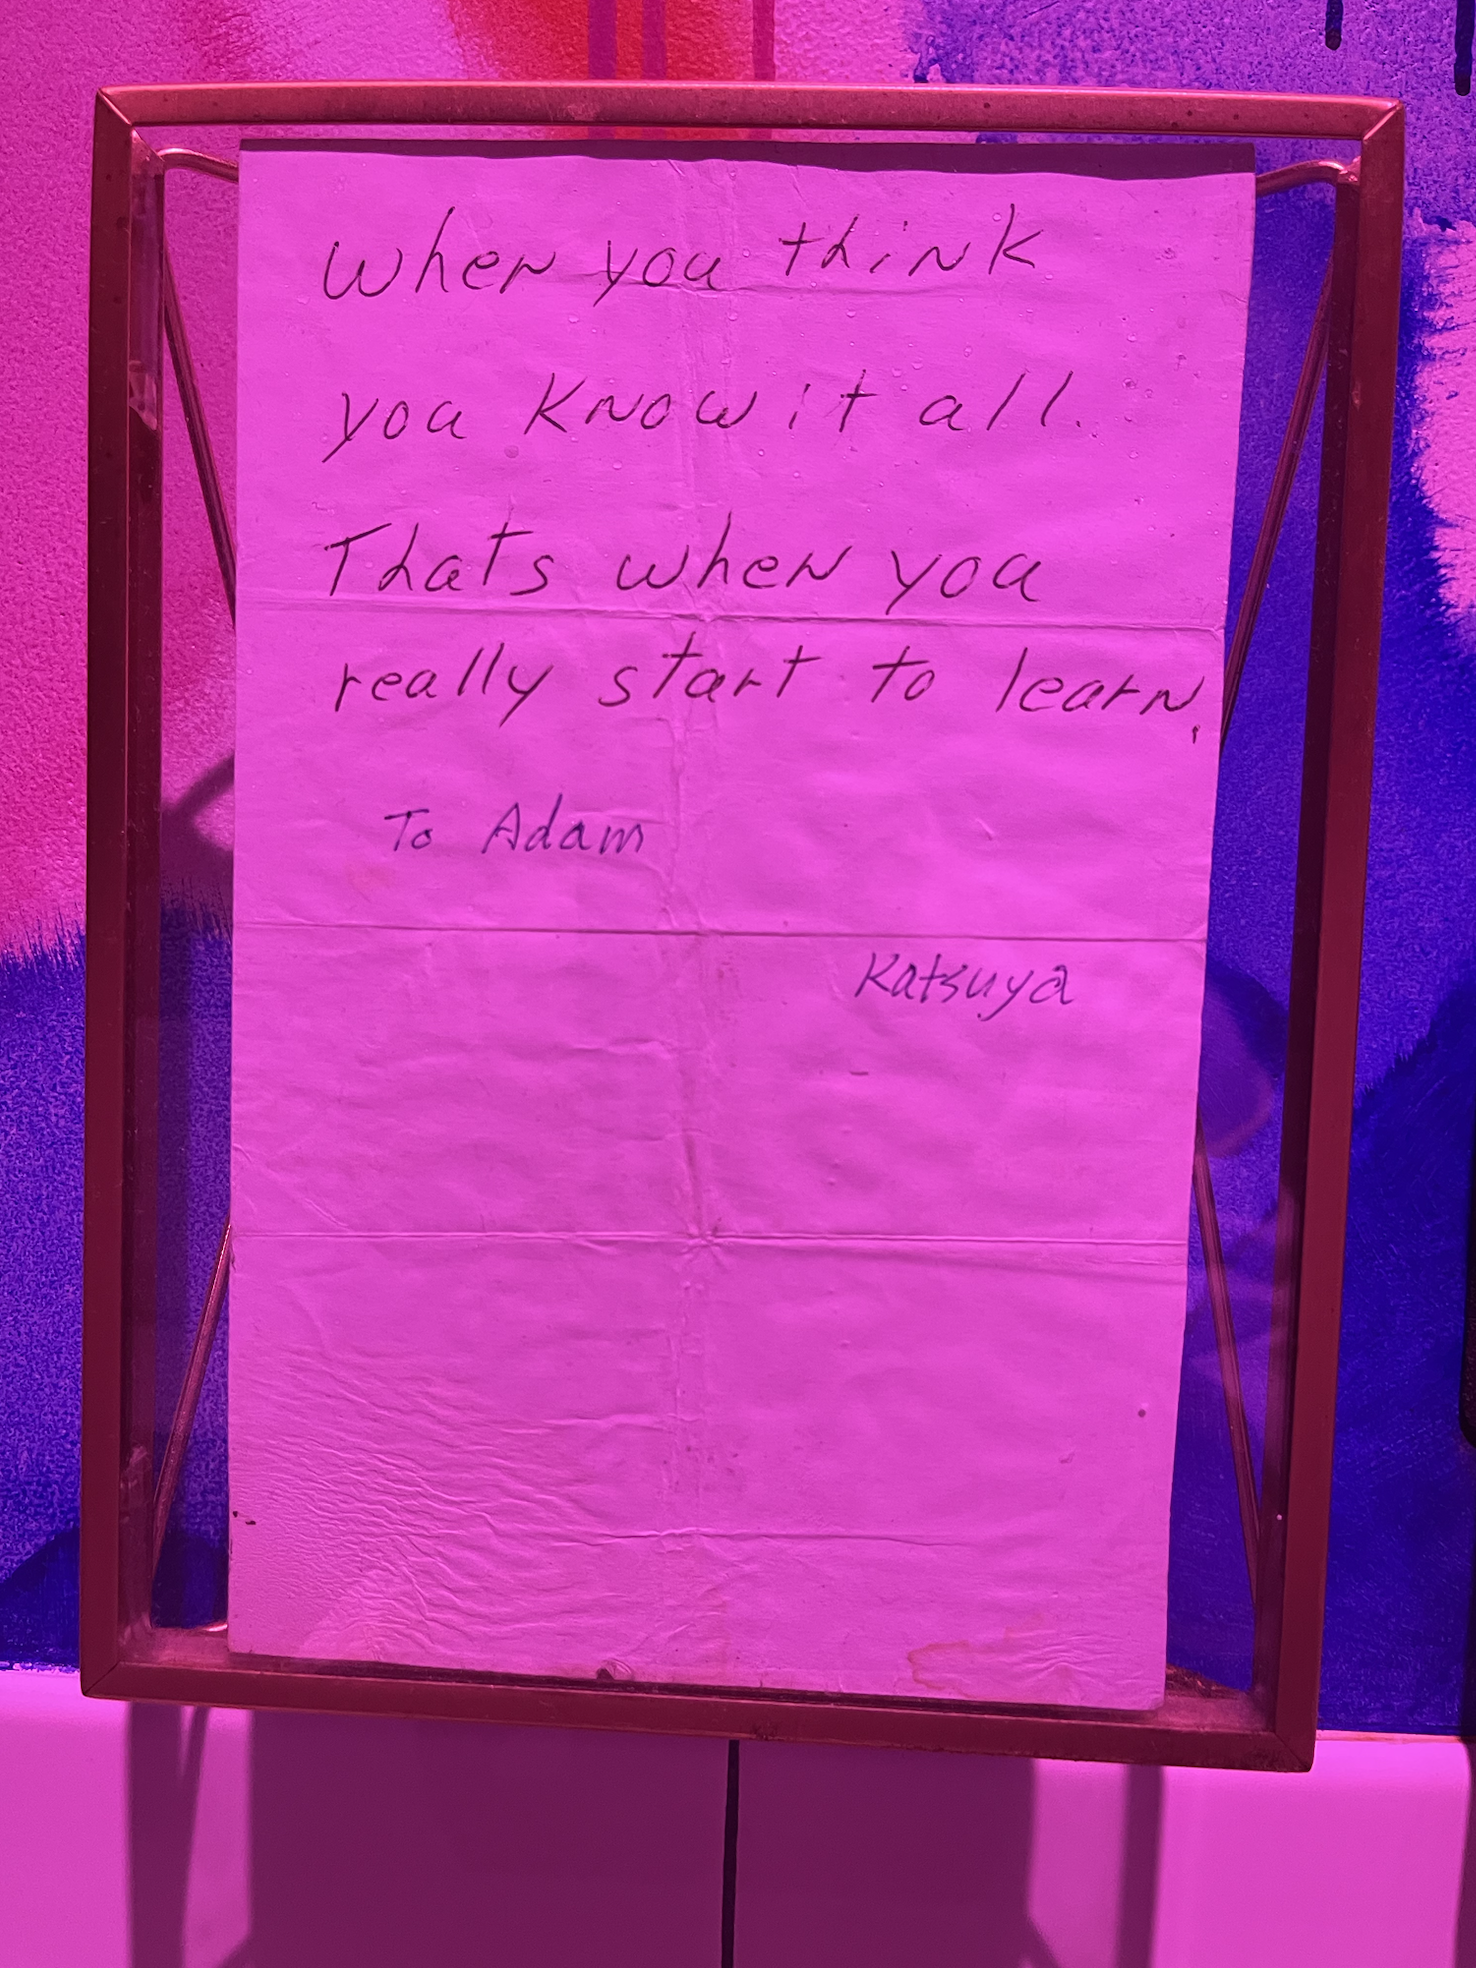 When you think
you know it all.
Thats when you
really start to learn.
To Adam
Katsuya